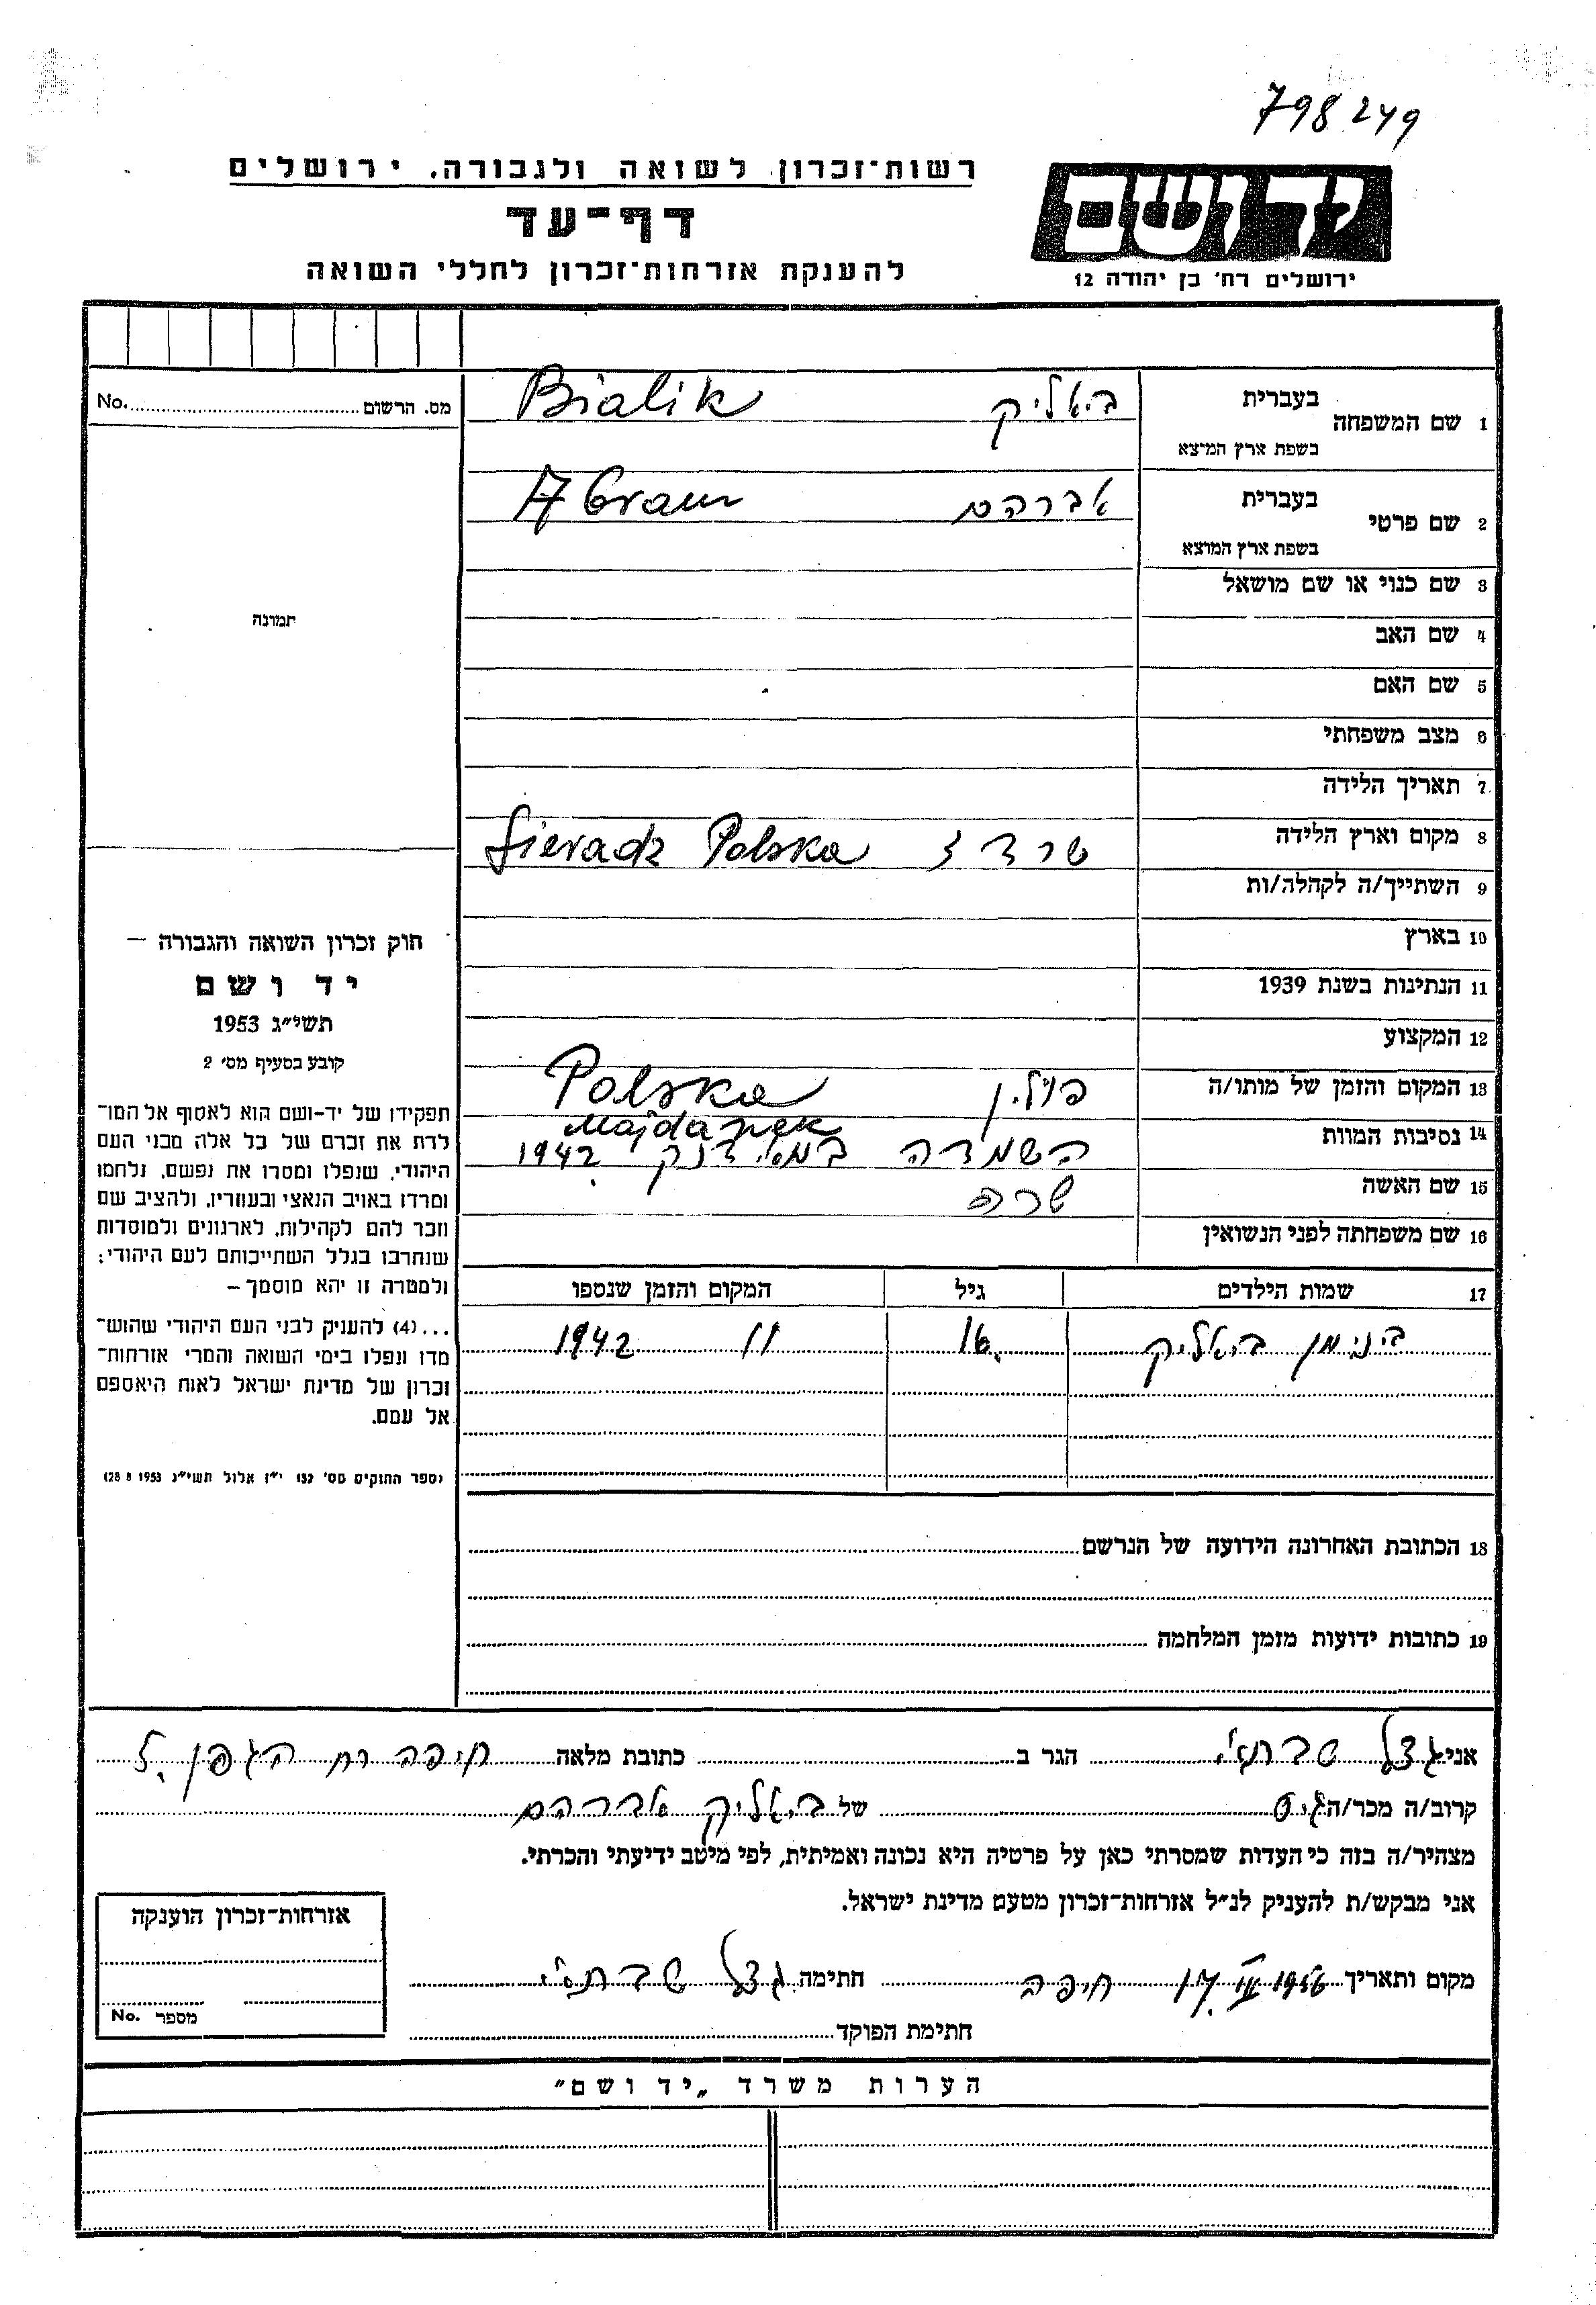 798249
רשות-זכרון לשואה ולגבורה, ירושלים
דף-עד
להענקת אזרחות-זכרון לחללי השואה
יד ושם
ירושלים רח' בן יהודה 12
מס. הרשום No.
תמונה
חוק זכרון השואה והגבורה –
יד ושם
תשי"ג 1953
קובע בסעיף מס' 2
תפקידו של יד-ושם הוא לאסוף אל המו־
לדת את זכרם של כל אלה מבני העם
היהודי, שנפלו ומסרו את נפשם, נלחמו
ומרדו באויב הנאצי ובעוזריו, ולהציב שם
וזכר להם לקהילות, לארגונים ולמוסדות
שנחרבו בגלל השתייכותם לעם היהודי;
ולמטרה זו יהא מוסמך –
...(4) להעניק לבני העם היהודי שהוש־
מדו ונפלו בימי השואה והמרי אזרחות־
זכרון של מדינת ישראל לאות היאספם
אל עמם.
(ספר החוקים מס' 132 י"ז אלול תשי"ג 28 8 1953)
בעברית
1 שם המשפחה ביאליק Bialik
בשפת ארץ המוצא
בעברית
2 שם פרטי אברהם Abram
בשפת ארץ המוצא
3 שם כנוי או שם מושאל
4 שם האב
5 שם האם
6 מצב משפחתי
7 תאריך הלידה
8 מקום וארץ הלידה שרדז Sieradz Polska
9 השתייך/ה לקהלה/ות
10 בארץ
11 הנתינות בשנת 1939
12 המקצוע
13 המקום והזמן של מותו/ה פולין Polska
Majdanek
14 נסיבות המוות השמדה במאידנק 1942
15 שם האשה שרה
16 שם משפחתה לפני הנשואין
17 שמות הילדים גיל המקום והזמן שנספו
בנימן ביאליק 16 11 1942
18 הכתובת האחרונה הידועה של הנרשם
19 כתובות ידועות מזמן המלחמה
אני גצל שבתאי הגר ב כתובת מלאה חיפה רח הגפן 5
קרוב/ה מכר/ה גיס של ביאליק אברהם
מצהיר/ה בזה כי העדות שמסרתי כאן על פרטיה היא נכונה ואמיתית, לפי מיטב ידיעתי והכרתי.
אני מבקש/ת להעניק לנ"ל אזרחות-זכרון מטעם מדינת ישראל.
מקום ותאריך 1956 17. חיפה חתימה גצל שבתאי
חתימת הפוקד
אזרחות-זכרון הוענקה
מספר No.
הערות משרד "יד ושם"